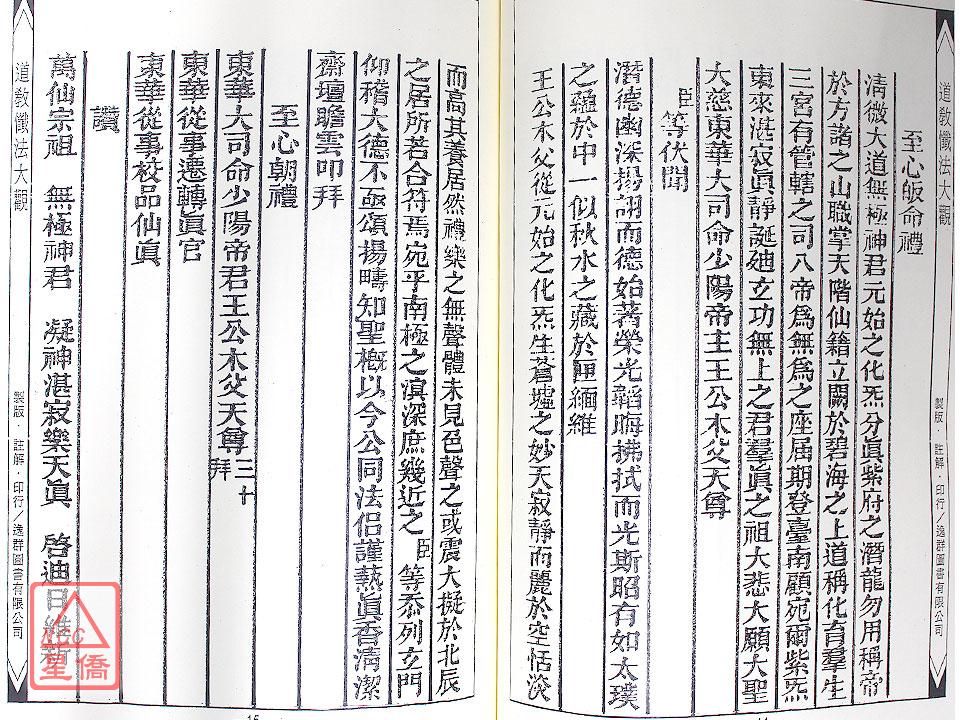 道教懺法大觀
製版．註解．印行／逸群圖書有限公司
至心皈命禮
清微大道無極神君元始之化炁分眞紫府之潛龍勿用稱帝
於方諸之山職掌天階仙籍立闕於碧海之上道稱化育羣生
三宮有管轄之司八帝爲無爲之座届期登臺南顧宛爾紫炁
東來湛寂眞靜誕廸玄功無上之君羣眞之祖大悲大願大聖
大慈東華大司命少陽帝主王公木父天尊
臣等伏聞
潛德幽深揚詡而德始著榮光韜晦拂拭而光斯昭有如太璞
之緼於中一似秋水之藏於匣緬維
王公木父從元始之化炁生蒼墟之妙天寂靜而麗於空恬淡
而高其養居然禮樂之無聲體未見色聲之或震大擬於北辰
之居所若合符焉宛乎南極之滇深庶幾近之臣等忝列玄門
仰稽大德不亟頌揚疇知聖概以今公同法侶謹爇眞香淸潔
齋壇瞻雲叩拜
至心朝禮
東華大司命少陽帝君王公木父天尊三十拜
東華從事遷轉眞官
東華從事校品仙眞
讚
萬仙宗祖　無極神君　凝神湛寂樂天眞　啓迪日維新
道教懺法大觀
製版．註解．印行／逸群圖書有限公司
星僑
15